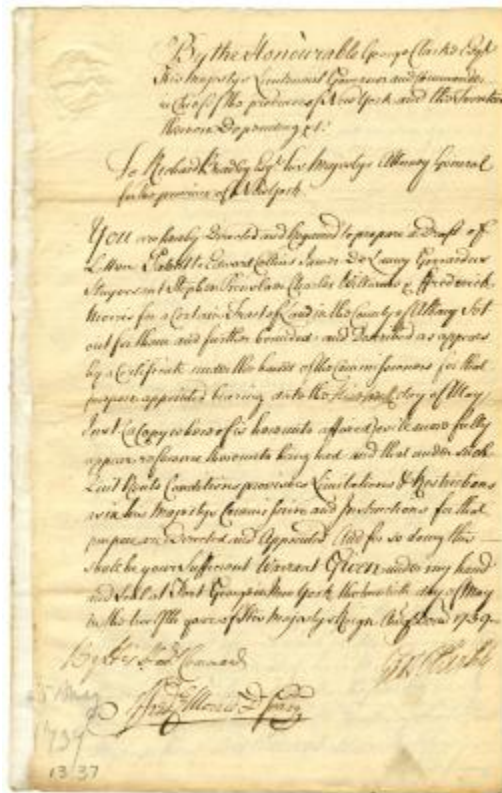 By the Honourable George Clarke Esqr
His Majestys Lieutenant Governor and Commander
in Chief of the province of New York and the Territories
thereon Depending &c:
To Richard Bradley Esqr his Majestys Attorney General
for the province of New York
You are hereby Directed and Required to prepare a Draft of
Letters Patent to Edward Collins James De Lancey Gerardus
Stuyvesant Stephen Charles Williams & Frederick
Morris for a Certain Tract of Land in the County of Albany Set
out for them and further bounded and Described as appears
by a Certificate under the hands of the Commissioners for that
purpose appointed bearing date the day of May
Inst (a Copy whereof is hereunto affixed) will more fully
appear reference thereunto being had and that under such
Quit Rents Conditions provisoes Limitations & Restrictions
as in his Majestys Commission and Instructions for that
purpose are Directed and Appointed And for so doing this
shall be your Sufficient Warrant Given under my hand
and Seal at Fort George in New York the day of May
in the twelfth year of His Majestys Reign Domi 1739
By his Command
Geo Clarke
Fred Morris D Secry
May
1739
13 37